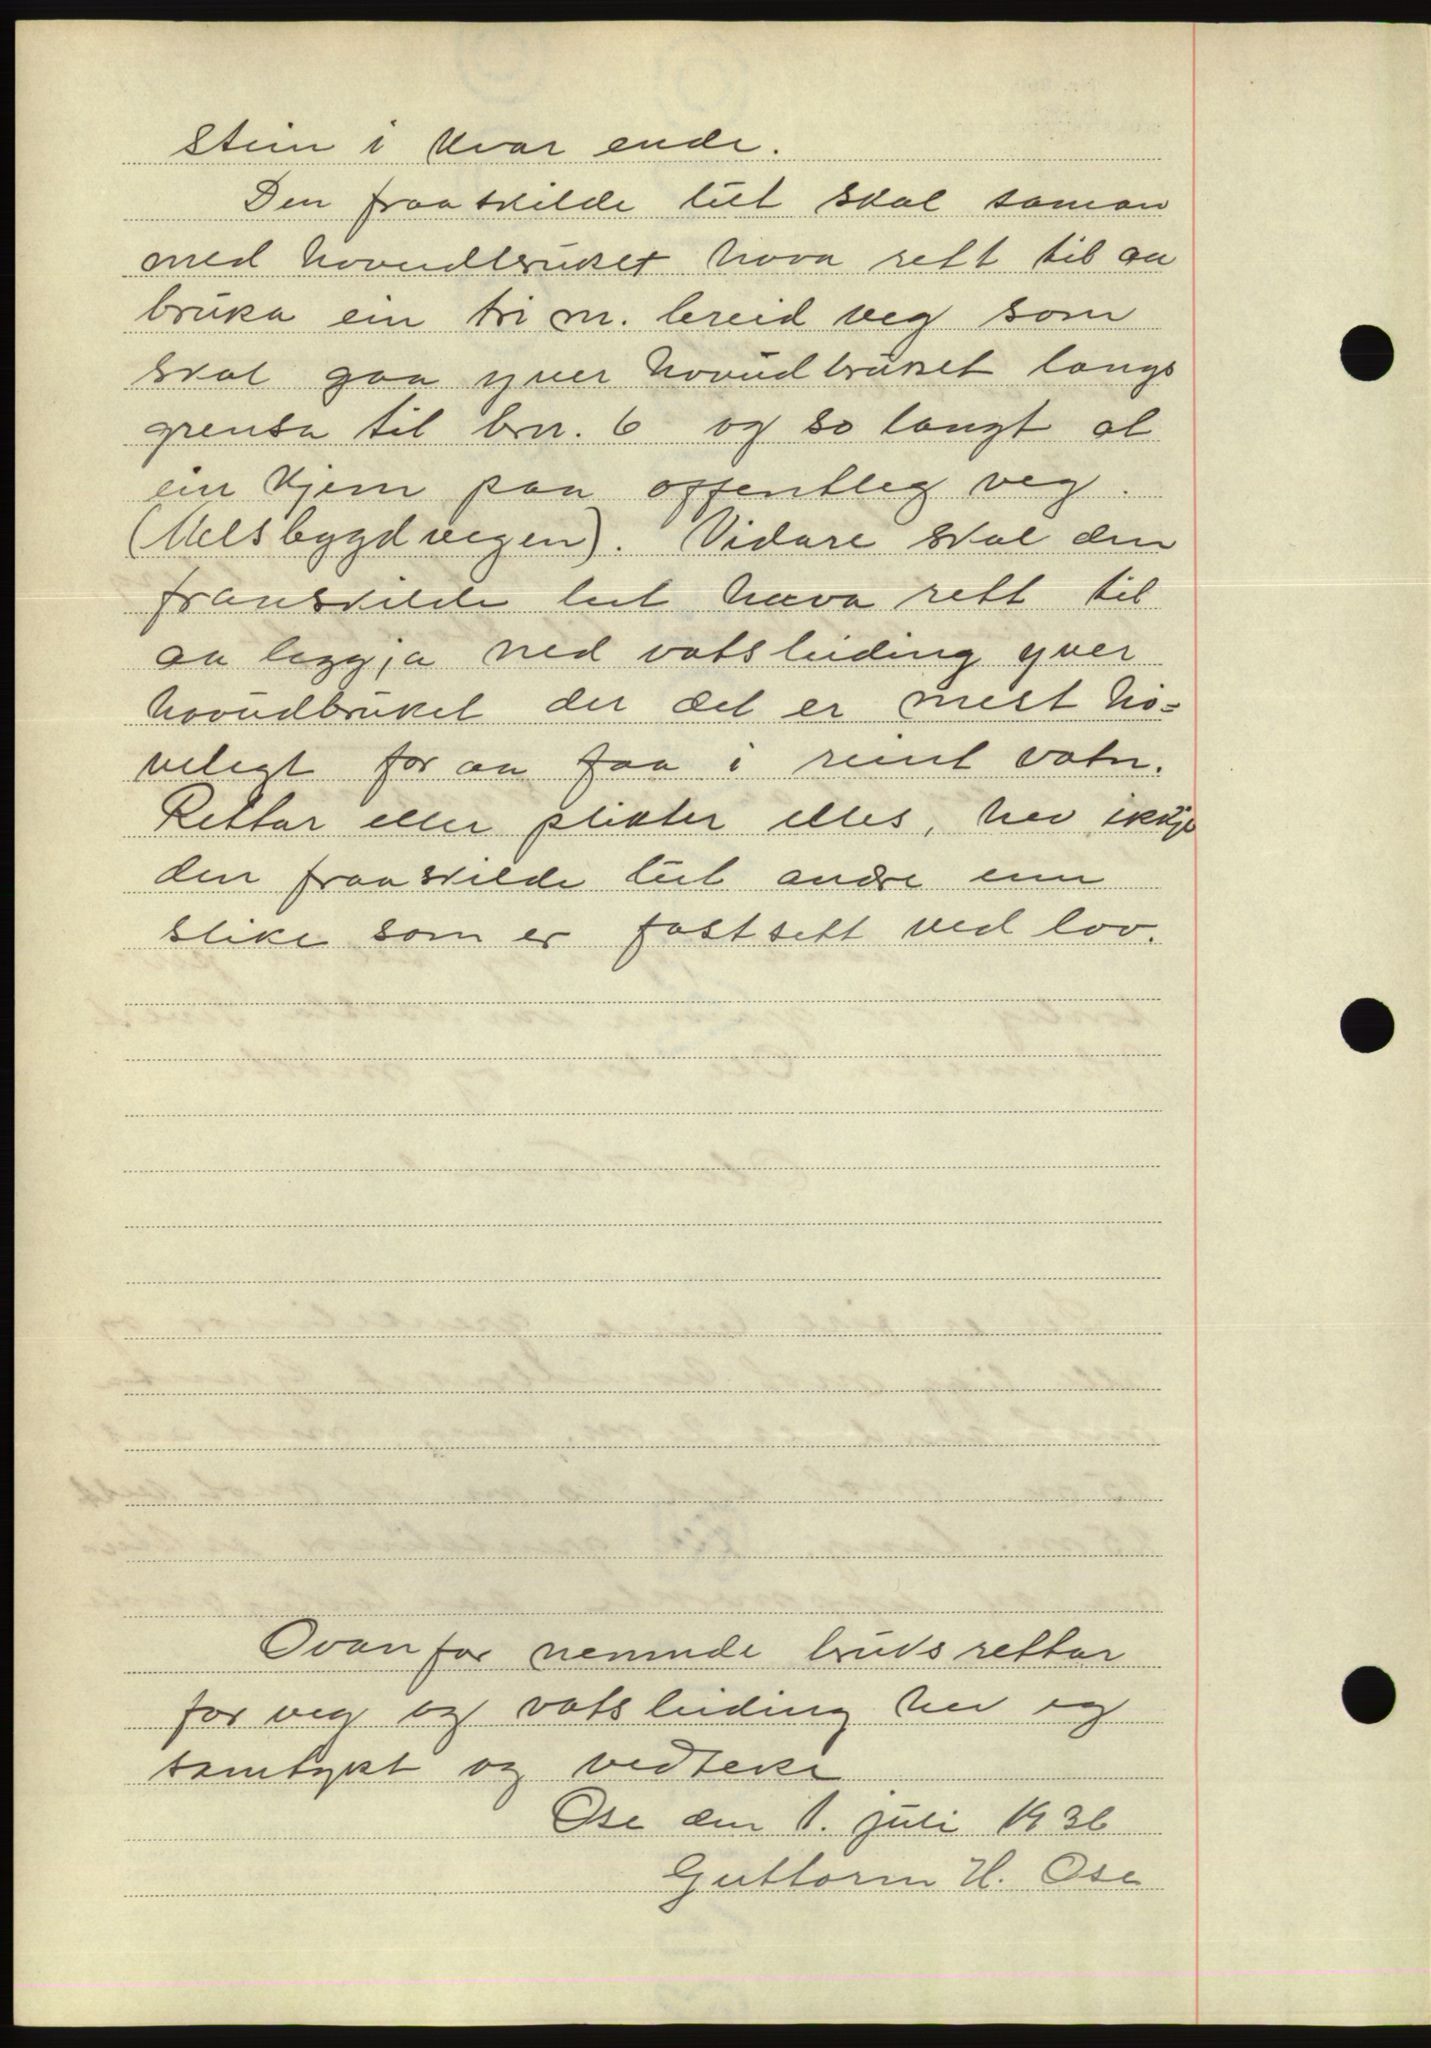 stein i kvar ende.
Den fraaskilde lut skal saman
med hovudbruket hava rett til aa
bruka ein tri m. breid veg som
skal gaa yver hovudbruket langs
grensa til brn. 6 og so langt at
ein kjem paa offentleg veg.
(Melsbygdvegen). Vidare skal den
fraaskilde lut hava rett til
aa leggja ned vatsleiding yver
hovudbruket der det er mest hø=
velegt for aa faa i reint vatn.
Rettar eller plikter elles, hev ikkje
den fraaskilde lut andre enn
slike som er fastsett ved lov.
Ovanfor nemnde bruksrettar
for veg og vatsleiding hev eg
samtykt og vedteke
Ose den 1. juli 1936
Guttorm H. Ose